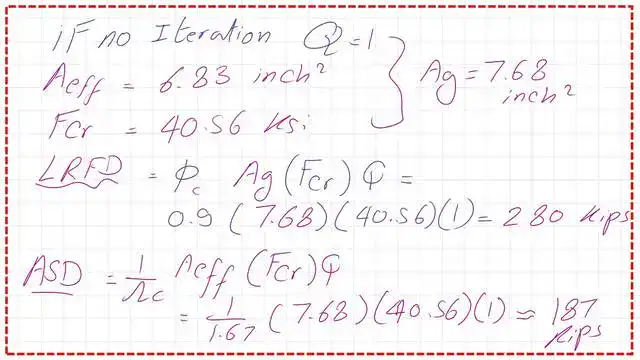 iF no Iteration Q=1
Aeff = 6.83 inch²
Fcr = 40.56 Ksi
Ag=7.68
inch²
LRFD = φc Ag(Fcr) Q =
0.9 (7.68)(40.56)(1)=280 Kips
ASD = 1/Ωc Aeff (Fcr)Q
= 1/1.67 (7.68)(40.56)(1) ≈ 187
Kips